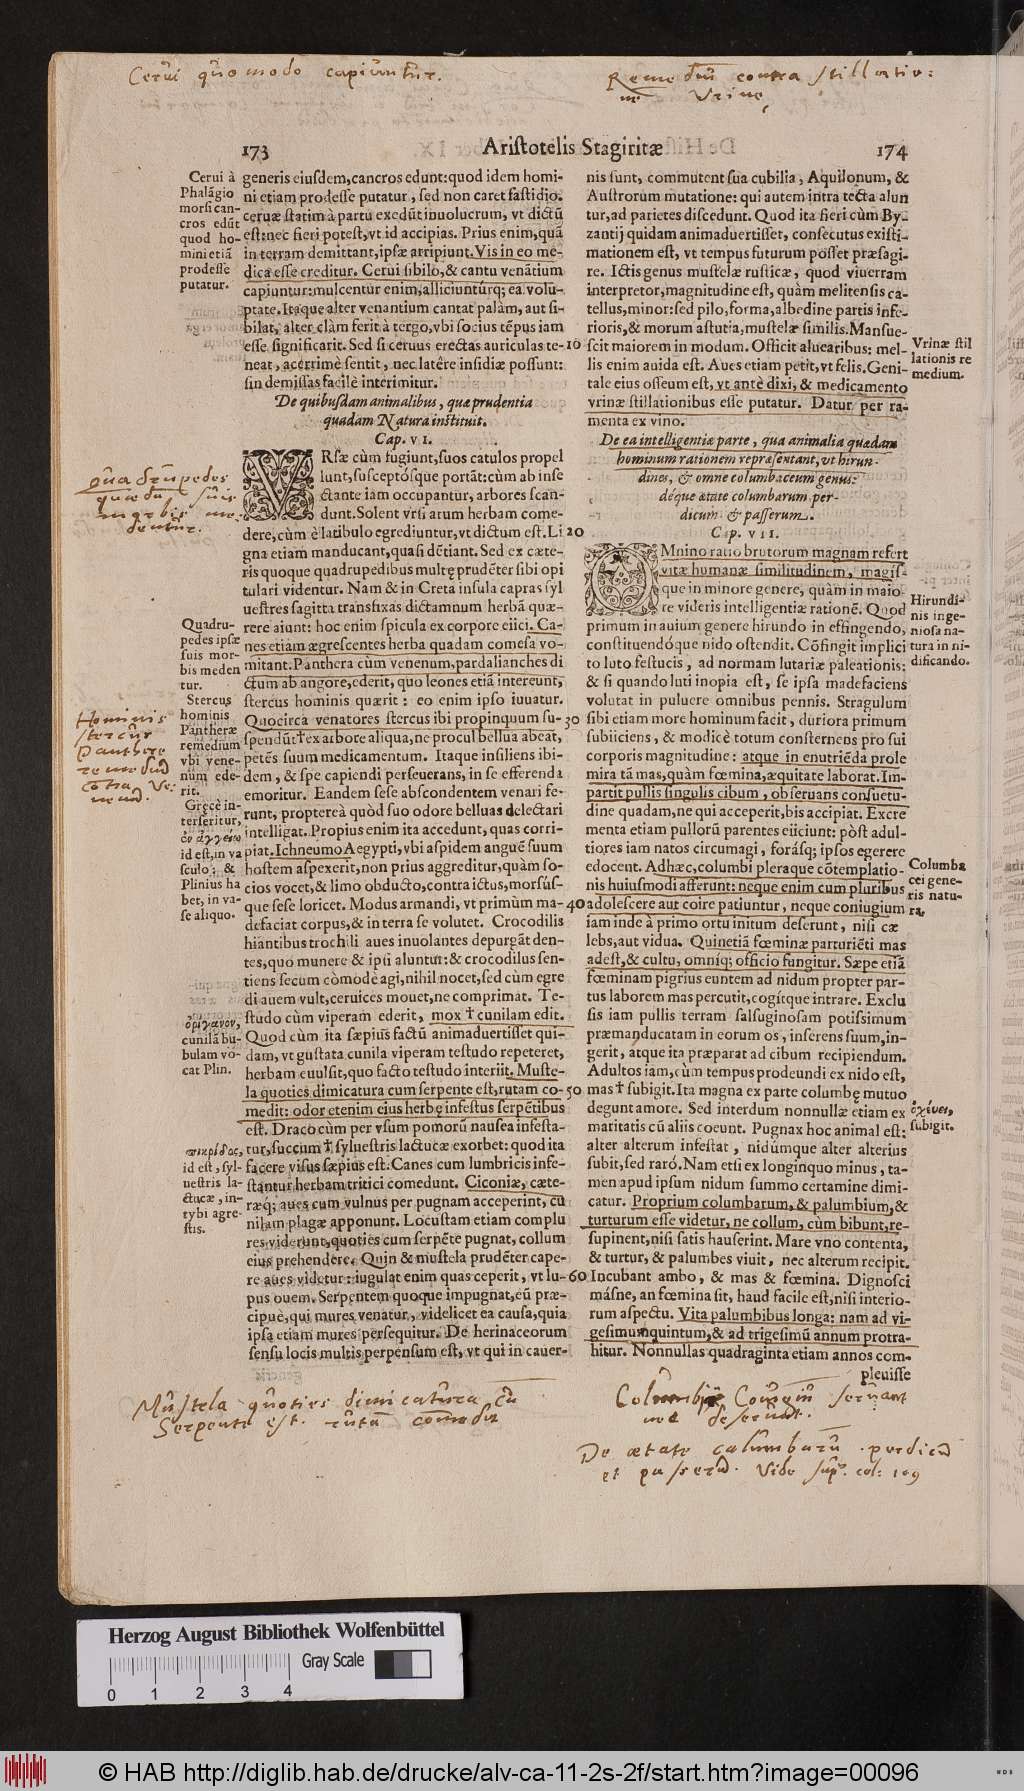 Cerui quomodo capiuntur.
Remedium contra stillatio=
ne Vrinę
173
Aristotelis Stagiritæ
174
Cerui à
Phalãgio
morsi can-
cros edũt
quod ho-
mini etiã
prodesse
putatur.
generis eiusdem, cancros edunt: quod idem homi-
ni etiam prodesse putatur, sed non caret fastidio.
ceruæ statim à partu exedũt inuolucrum, vt dictũ
est: nec fieri potest, vt id accipias. Prius enim, quã
in terram demittant, ipsæ arripiunt. Vis in eo me-
dica esse creditur. Cerui sibilo, & cantu venãtium
capiuntur: mulcentur enim, alliciuntúrq; ea volu-
ptate. Itaque alter venantium cantat palàm, aut si-
bilat, alter clàm ferit à tergo, vbi socius tẽpus iam
esse significarit. Sed si ceruus erectas auriculas te-
neat, acerrimè sentit, nec latêre insidiæ possunt:
sin demissas facilè interimitur.
De quibusdam animalibus, quæ prudentia
quadam Natura instituit.
Cap. VI.
quadrupedes
quædã suis
morbis me-
dentur.
VRsæ cùm fugiunt, suos catulos propel
lunt, susceptósque portãt: cùm ab inse
ctante iam occupantur, arbores scan-
dunt. Solent vrsi arum herbam come-
dere, cùm è latibulo egrediuntur, vt dictum est. Li
gna etiam manducant, quasi dẽtiant. Sed ex cæte-
ris quoque quadrupedibus multę prudẽter sibi opi
tulari videntur. Nam & in Creta insula capras syl
uestres sagitta transfixas dictamnum herbã quæ-
rere aiunt: hoc enim spicula ex corpore eiici. Ca-
nes etiam ægrescentes herba quadam comesa vo-
mitant. Panthera cùm venenum, pardalianches di
ctum ab angore, ederit, quo leones etiã intereunt,
stercus hominis quærit: eo enim ipso iuuatur.
Quocirca venatores stercus ibi propinquum su-
spendũt † ex arbore aliqua, ne procul bellua abeat,
petẽs suum medicamentum. Itaque insiliens ibi-
dem, & spe capiendi perseuerans, in se efferenda
emoritur. Eandem sese abscondentem venari fe-
runt, propterea quòd suo odore belluas delectari
intelligat. Propius enim ita accedunt, quas corri-
piat. Ichneumo Aegypti, vbi aspidem anguẽ suum
hostem aspexerit, non prius aggreditur, quàm so-
cios vocet, & limo obducto, contra ictus, morsús-
que sese loricet. Modus armandi, vt primùm ma-
defaciat corpus, & in terra se volutet. Crocodilis
hiantibus trochili aues inuolantes depurgãt den-
tes, quo munere & ipsi aluntur: & crocodilus sen-
tiens secum cõmodè agi, nihil nocet, sed cùm egre
di auem vult, ceruices mouet, ne comprimat. Te-
studo cùm viperam ederit, mox † cunilam edit.
Quod cùm ita sæpius factũ animaduertisset qui-
dam, vt gustata cunila viperam testudo repeteret,
herbam euulsit, quo facto testudo interiit. Muste-
la quoties dimicatura cum serpente est, rutam co-
medit: odor etenim eius herbę infestus serpẽtibus
est. Draco cùm per vsum pomorũ nausea infesta-
tur, succum † syluestris lactucæ exorbet: quod ita
facere visus sæpius est: Canes cum lumbricis infe-
stantur herbam tritici comedunt. Ciconiæ, cæte-
ræq; aues cum vulnus per pugnam acceperint, cu
nilam plagæ apponunt. Locustam etiam complu
res viderunt, quoties cum serpẽte pugnat, collum
eius prehendere. Quin & mustela prudẽter cape-
re aues videtur: iugulat enim quas ceperit, vt lu-
pus ouem. Serpentem quoque impugnat, eũ præ-
cipuè, qui mures venatur, videlicet ea causa, quia
ipsa etiam mures persequitur. De herinaceorum
sensu locis multis perpensum est, vt qui in cauer-
Quadru-
pedes ipsæ
suis mor-
bis meden
tur.
Stercus
hominis
Pantheræ
remedium
vbi vene-
num ede-
rit.
Grecè in-
terseritur,
ἐν ἀγγείῳ
id est, in va
sculo: &
Plinius ha
bet, in va-
se aliquo.
Hominis
stercus
Panthere
remediũ
cõtra ve-
nenũ.
ὀρίγανον,
cunilã bu-
bulam vo-
cat Plin.
πικρίδος,
id est, syl-
uestris la-
ctucæ, in-
tybi agre-
stis.
10
20
30
40
50
60
nis sunt, commutent sua cubilia, Aquilonum, &
Austrorum mutatione: qui autem intra tecta alun
tur, ad parietes discedunt. Quod ita fieri cùm By-
zantij quidam animaduertisset, consecutus existi-
mationem est, vt tempus futurum posset præsagi-
re. Ictis genus mustelæ rusticæ, quod viuerram
interpretor, magnitudine est, quàm melitensis ca-
tellus, minor: sed pilo, forma, albedine partis infe-
rioris, & morum astutia, mustelæ similis. Mansue-
scit maiorem in modum. Officit aluearibus: mel-
lis enim auida est. Aues etiam petit, vt felis. Geni-
tale eius osseum est, vt antè dixi, & medicamento
vrinæ stillationibus esse putatur. Datur per ra-
menta ex vino.
De ea intelligentiæ parte, qua animalia quædam
hominum rationem repræsentant, vt hirun-
dines, & omne columbaceum genus:
déque ætate columbarum per-
dicum & passerum.
Cap. VII.
OMnino ratio brutorum magnam refert
vitæ humanæ similitudinem, magís-
que in minore genere, quàm in maio-
re videris intelligentiæ rationẽ. Quod
primum in auium genere hirundo in effingendo,
constituendóque nido ostendit. Cõfingit implici
to luto festucis, ad normam lutariæ paleationis:
& si quando luti inopia est, se ipsa madefaciens
volutat in puluere omnibus pennis. Stragulum
sibi etiam more hominum facit, duriora primum
subiiciens, & modicè totum consternens pro sui
corporis magnitudine: atque in enutriẽda prole
mira tã mas, quàm fœmina, æquitate laborat. Im-
partit pullis singulis cibum, obseruans consuetu-
dine quadam, ne qui acceperit, bis accipiat. Excre
menta etiam pullorũ parentes eiiciunt: pòst adul-
tiores iam natos circumagi, forásq; ipsos egerere
edocent. Adhæc, columbi pleraque cõtemplatio-
nis huiusmodi afferunt: neque enim cum pluribus
adolescere aut coire patiuntur, neque coniugium
iam inde à primo ortu initum deserunt, nisi cæ
lebs, aut vidua. Quinetiã fœminæ parturiẽti mas
adest, & cultu, omníq; officio fungitur. Sæpe etiã
fœminam pigrius euntem ad nidum propter par-
tus laborem mas percutit, cogítque intrare. Exclu
sis iam pullis terram salsuginosam potissimum
præmanducatam in eorum os, inserens suum, in-
gerit, atque ita præparat ad cibum recipiendum.
Adultos iam, cùm tempus prodeundi ex nido est,
mas † subigit. Ita magna ex parte columbę mutuo
degunt amore. Sed interdum nonnullæ etiam ex
maritatis cũ aliis coeunt. Pugnax hoc animal est:
alter alterum infestat, nidúmque alter alterius
subit, sed raró. Nam etsi ex longinquo minus, ta-
men apud ipsum nidum summo certamine dimi-
catur. Proprium columbarum, & palumbium, &
turturum esse videtur, ne collum, cùm bibunt, re-
supinent, nisi satis hauserint. Mare vno contenta,
& turtur, & palumbes viuit, nec alterum recipit.
Incubant ambo, & mas & fœmina. Dignosci
másne, an fœmina sit, haud facile est, nisi interio-
rum aspectu. Vita palumbibus longa: nam ad vi-
gesimumquintum, & ad trigesimũ annum protra-
hitur. Nonnullas quadraginta etiam annos com-
pleuisse
Vrinæ stil
lationis re
medium.
Hirundi-
nis inge-
niosa na-
tura in ni-
dificando.
Columba
cei gene-
ris natu-
ra.
ὀχεύει,
subigit.
Mustela quoties dimicatura cũ
Serpente est. rutã comedit
Columbæ Coniugiũ seruant
nec deserunt.
De ætate columbarũ perdicũ
et passerũ. Vide sup. col: 109
Herzog August Bibliothek Wolfenbüttel
Gray Scale
0 1 2 3 4
© HAB http://diglib.hab.de/drucke/alv-ca-11-2s-2f/start.htm?image=00096